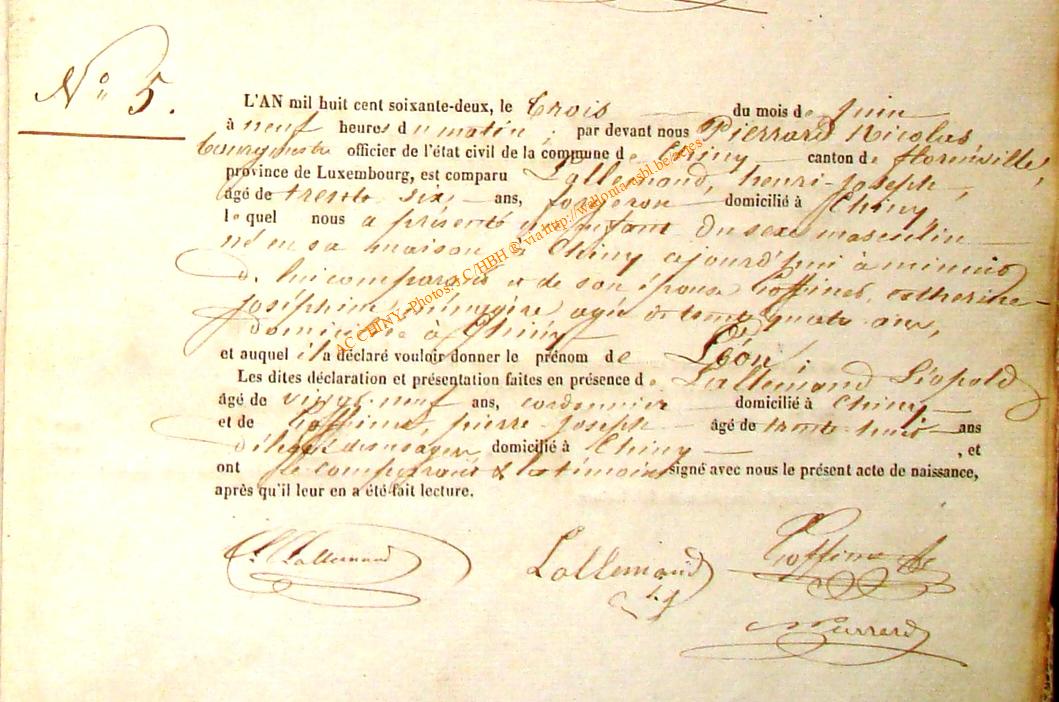 N° 5.
L'AN mil huit cent soixante-deux, le trois du mois de Juin
à neuf heures du matin ; par devant nous Pierrard Nicolas
bourgmestre officier de l'état civil de la commune de Chiny canton de florenville,
province de Luxembourg, est comparu Lallemand, henri-Joseph,
âgé de trente six ans, forgeron domicilié à Chiny,
lequel nous a présenté un enfant du sexe masculin
né en sa maison à Chiny aujourd'hui à minuit
de lui comparant et de son épouse Goffinet catherine-
joséphine, ménagère agée de trente quatre ans,
domiciliée à Chiny
et auquel il a déclaré vouloir donner le prénom de Léon,
Les dites déclaration et présentation faites en présence de Lallemand Léopold
âgé de vingt-neuf ans, cordonnier domicilié à Chiny
et de Goffinet, pierre-Joseph âgé de trente-huit ans
domicilié à Chiny , et
ont le comparant & les témoins signé avec nous le présent acte de naissance,
après qu'il leur en a été fait lecture.
Lallemand Lallemand Goffinet
Pierrard
AC CHINY. Photos: J.C/HBH ® via http://wallonia-asbl.be/actes